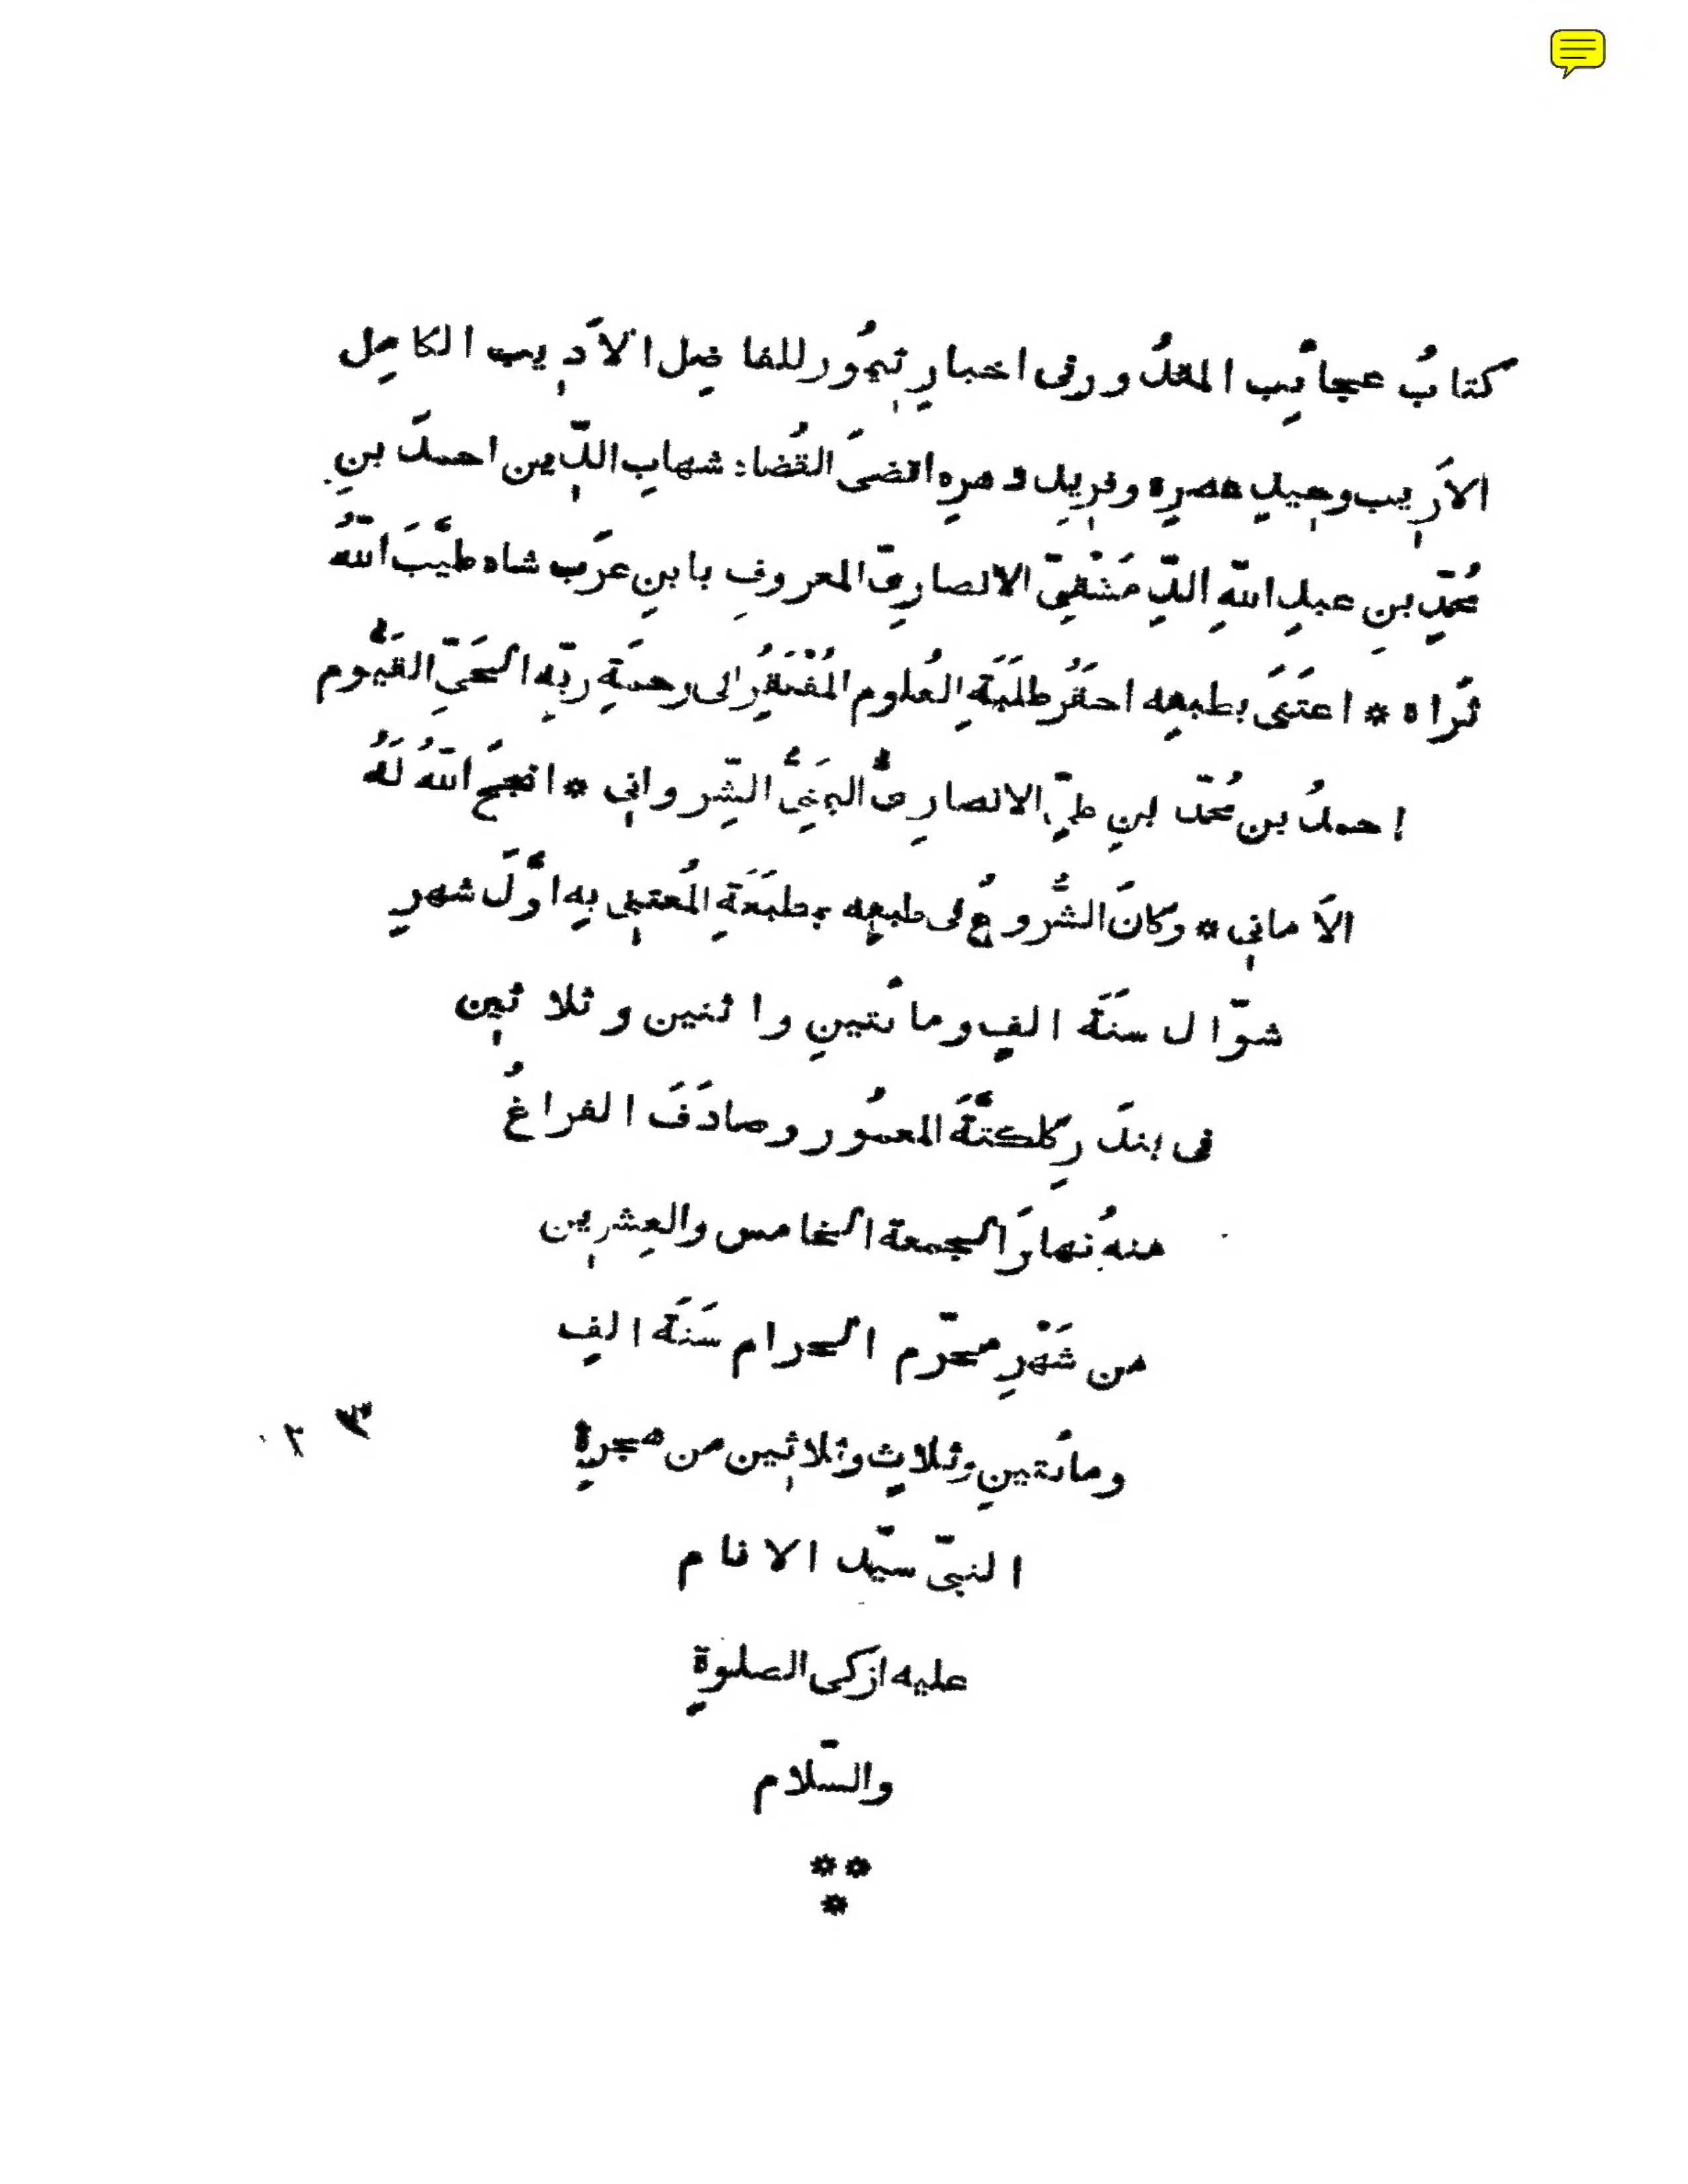 كتابُ عجائِب المقدُور فى اخبارِ تيمُور للفاضِل الاَدِيب الكامِل
الاَرِيب وحِيدِ عصرِه وفرِيدِ دهرِه اقضىَ القُضاة شهابِ الدِّين احمدَ بنِ
مُحمّدٍ بنِ عبدِ اللهِ الدِّمَشْقِيّ الانصارِىّ المعروفِ بابنِ عرَب شاه طيَّبَ اللهُ
ثَراه * اعتَنَى بطبعِه احقَرُ طلَبَةِ العُلوم المُفْتَقِرُ الى رحمَةِ ربِّه الحَىِّ القَيُّوم
احمدُ بن مُحمّد بنِ علىٍّ الانصارِىُّ اليمَنِىُّ الشِّروانِى * انجَحَ اللهُ لَهُ
الاَمانِى * وكانَ الشُّروعُ فى طبعِه بمطبَعَةِ المُعتنِى بِه اوَّلَ شهرِ
شوّال سنَةَ الفٍ ومائتينِ واثنين وثلاثِين
فى بندَرِ كلكتَّةَ المعمُور وصادَفَ الفراغُ
منهُ نهارَ الجمعة الخامس والعِشرِين
من شَهْرِ محرّم الحرام سَنَةَ الفٍ
ومائتينِ وثلاثٍ وثلاثِين من هجرةِ
النبىّ سيّد الانام
عليه ازكى الصلوةِ
والسّلام
**
*
٣ ٢